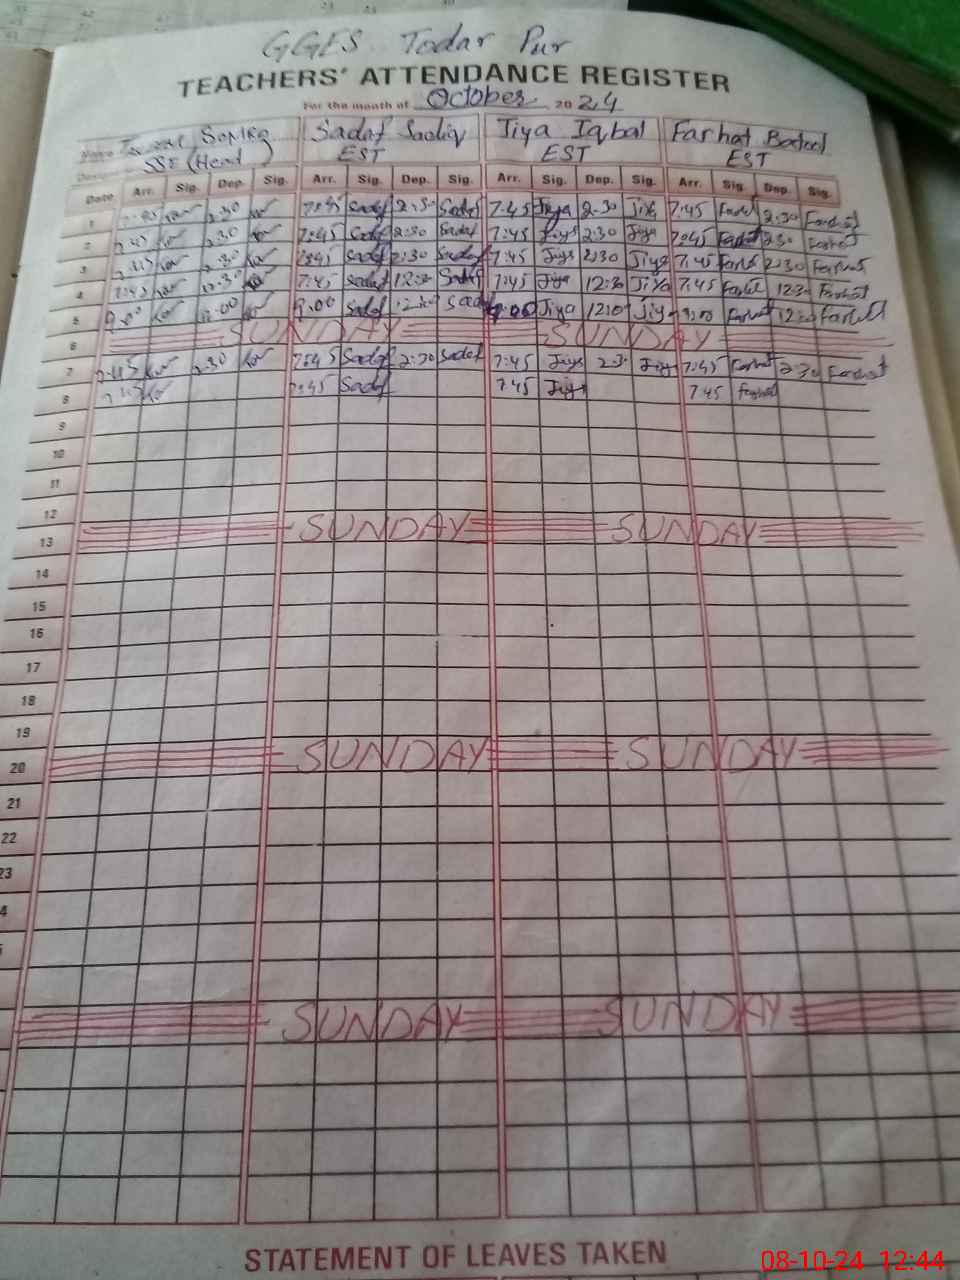 GGES Todar Pur
TEACHERS' ATTENDANCE REGISTER
For the month of October 2024
Name Sadaf Sadiq Jiya Iqbal Farhat Batool
SSE (Head) EST EST EST
Date Arr. Sig. Dep. Sig. Arr. Sig. Dep. Sig. Arr. Sig. Dep. Sig. Arr. Sig. Dep. Sig.
1 7:45 2:30 7:45 Sadaf 2:30 Sadaf 7:45 Jiya 2:30 Jiya 7:45 Farhat 2:30 Farhat
2 7:45 2:30 7:45 Sadaf 2:30 Sadaf 7:45 Jiya 2:30 Jiya 7:45 Farhat 2:30 Farhat
3 7:45 2:30 7:45 Sadaf 2:30 Sadaf 7:45 Jiya 2:30 Jiya 7:45 Farhat 2:30 Farhat
4 7:45 12:30 7:45 Sadaf 12:30 Sadaf 7:45 Jiya 12:30 Jiya 7:45 Farhat 12:30 Farhat
5 9:00 12:00 9:00 Sadaf Sadaf 9:00 Jiya 12:00 Jiya 9:00 Farhat Farhat
6 SUNDAY SUNDAY
7 7:45 2:30 7:45 Sadaf 2:30 Sadaf 7:45 Jiya 2:30 Jiya 7:45 Farhat 2:30 Farhat
8 7:45 7:45 Sadaf 7:45 Jiya 7:45 Farhat
9
10
11
12
13 SUNDAY SUNDAY
14
15
16
17
18
19
20 SUNDAY SUNDAY
21
22
23
4
SUNDAY SUNDAY
STATEMENT OF LEAVES TAKEN
08-10-24 12:44